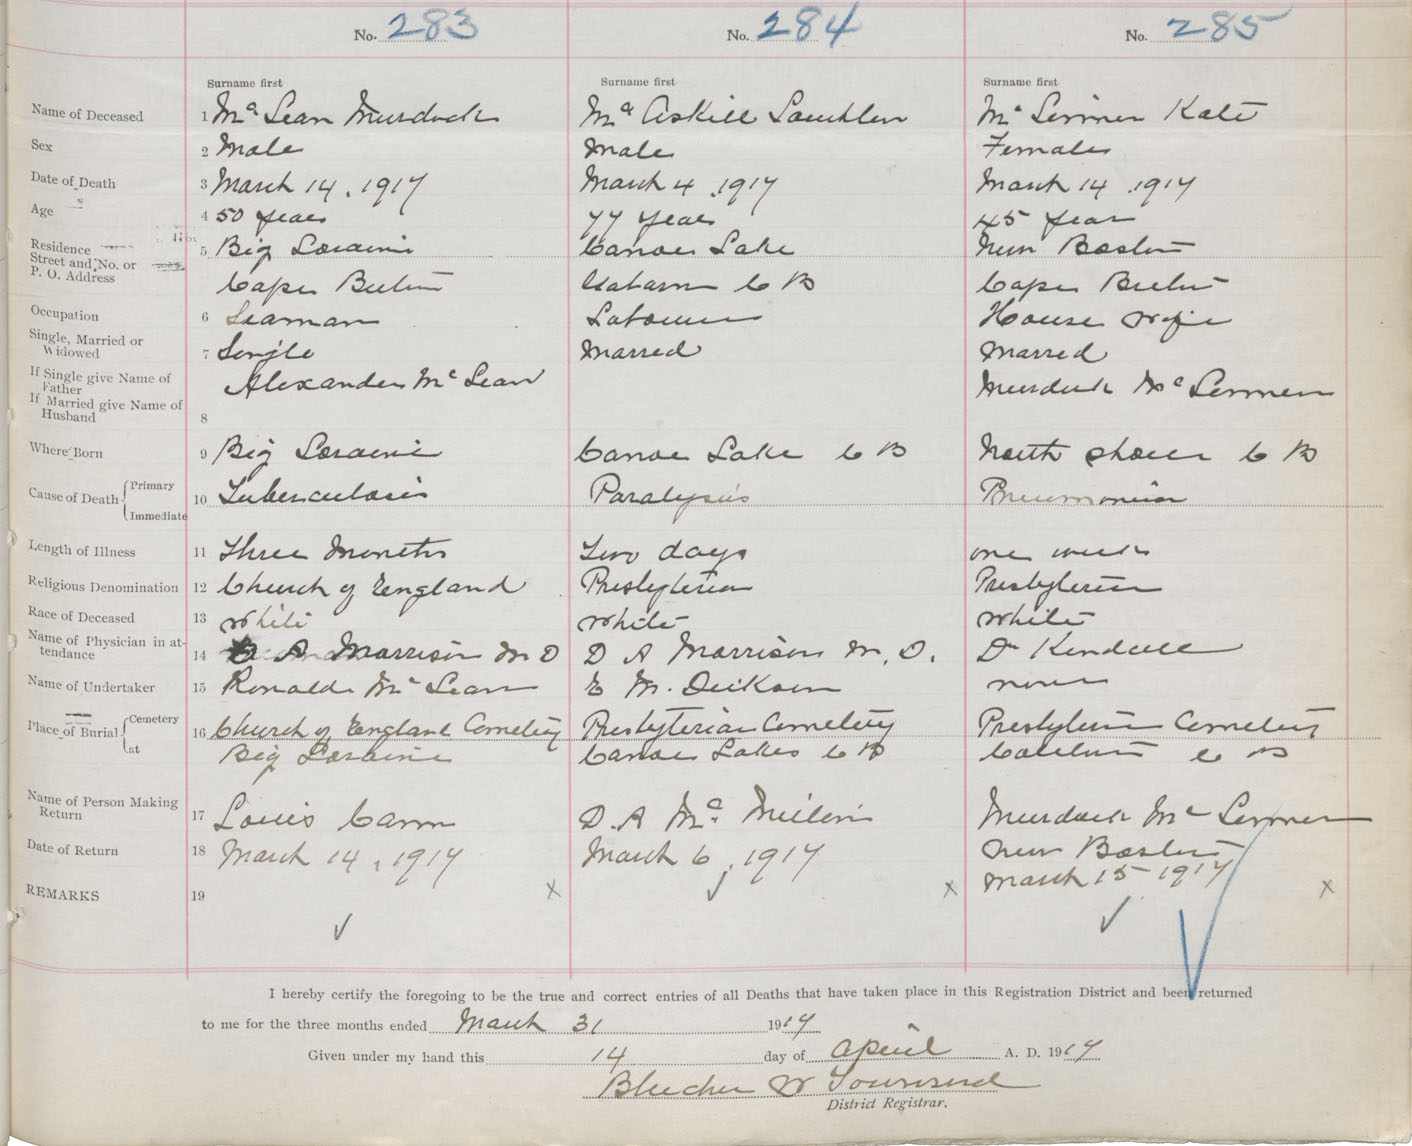 No. 283 No. 284 No. 285
Surname first Surname first Surname first
Name of Deceased 1 Mc Lean Murdock Mc Askill Lauchlen Mc Lennen Kate
Sex 2 Male Male Female
Date of Death 3 March 14, 1917 March 4, 1917 March 14, 1917
Age 4 50 years 77 years 45 year
Residence Street and No. or P. O. Address 5 Big Loraine Canoe Lake New Boston
Cape Breton Gabarus C B Cape Breton
Occupation 6 Seaman Labourer House wife
Single, Married or Widowed 7 Single Marred Marred
If Single give Name of Father Alexander Mc Lean Murdock Mc Lennen
If Married give Name of Husband 8
Where Born 9 Big Loraine Canoe Lake C B North Shore C B
Cause of Death { Primary Immediate 10 Tuberculosis Paralysis Pneumonia
Length of Illness 11 Three Months Two days one week
Religious Denomination 12 Church of England Presbyterian Presbyterian
Race of Deceased 13 White White White
Name of Physician in attendance 14 D A Morrison M D D A Morrison M. D. Dr Kendall
Name of Undertaker 15 Ronald Mc Lean E M. Dickson none
Place of Burial { Cemetery at 16 Church of England Cemetery Presbyterian Cemetery Presbyterian Cemetery
Big Loraine Canoe Lakes C B Catalone C B
Name of Person Making Return 17 Louis Cann D. A Mc Murdock Mc Lennen
New Boston
Date of Return 18 March 14, 1917 March 6, 1917 March 15 1917
REMARKS 19
I hereby certify the foregoing to be the true and correct entries of all Deaths that have taken place in this Registration District and been returned
to me for the three months ended March 31 1917
Given under my hand this 14 day of April A. D. 1917
W Townsend
District Registrar.